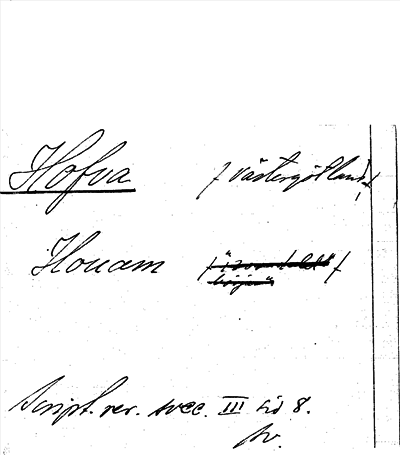 Hofva / Västergötland /
Houam
Script. rer. svec. III sid 8.